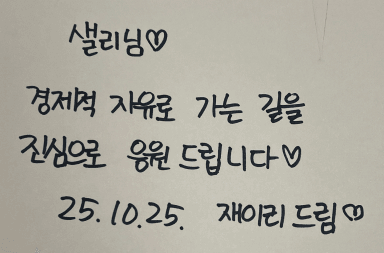 샐리님♡
경제적 자유로 가는 길을
진심으로 응원 드립니다♡
25.10.25. 재이리 드림♡